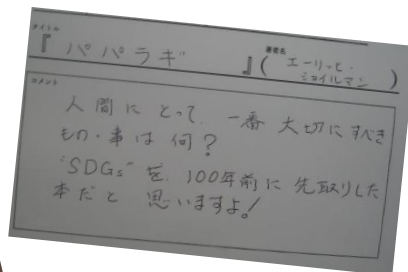 タイトル
『パパラギ』
著者名
(エーリッヒ・
ショイルマン)
コメント
人間にとって、一番大切にすべき
もの・事は何?
"SDGs"を、100年前に先取りした
本だと思いますよ!